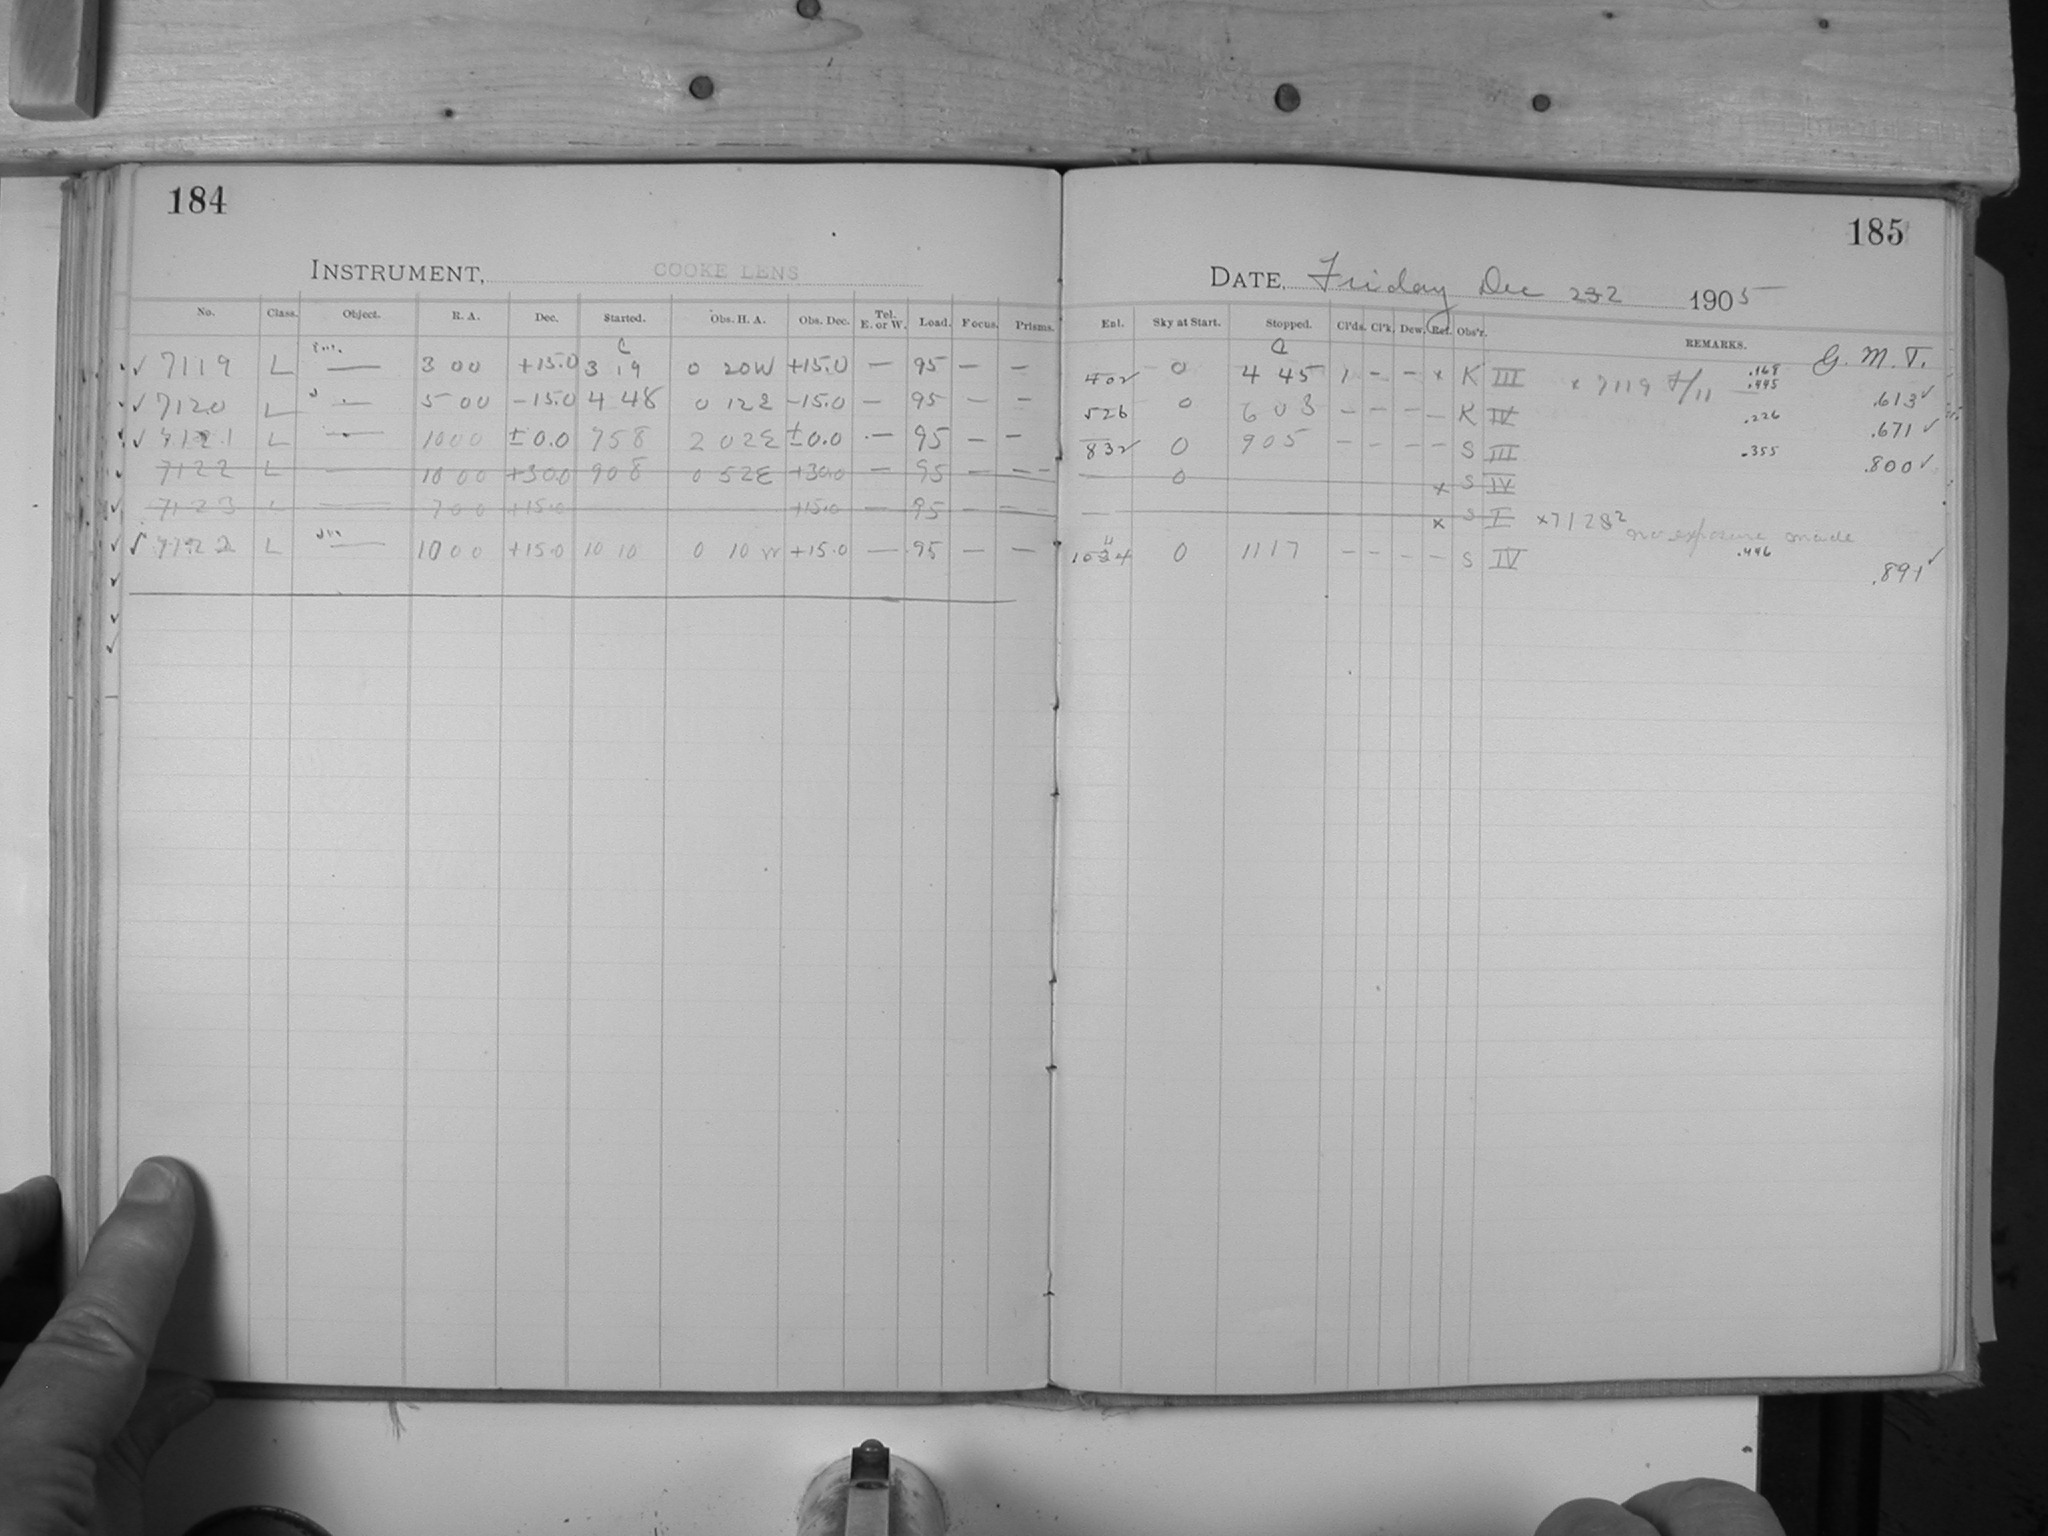 184
INSTRUMENT, COOKE LENS
No. Class. Object. R. A. Dec. Started. Obs. H. A. Obs. Dec. Tel. E. or W. Load. Focus. Prisms.
✓ 7119 L — 3 00 +15.0 3 19 0 20W +15.0 — 95 — —
✓ 7120 L — 5 00 −15.0 4 48 0 12E −15.0 — 95 — —
✓ 7121 L — 10 00 ±0.0 7 58 2 02E ±0.0 — 95 — —
7122 L — 10 00 +30.0 9 08 0 52E +30.0 — 95 — —
7123 L — 7 00 +15.0 +15.0 — 95 — —
✓ 7122 L — 10 00 +15.0 10 10 0 10 W +15.0 — 95 — —
185
DATE, Friday Dec 22 1905
Enl. Sky at Start. Stopped. Cl'ds. Cl'k. Dew. Ref. Obs'r. REMARKS.
G. M. T.
402 0 4 45 1 – – × K III × 7119 .168 .445 .613 ✓
526 0 6 03 – – – – K IV .226 .671 ✓
832 0 9 05 – – – – S III .355 .800 ✓
— 0 × S IV
— × S I no exposure made
0 11 17 – – – – S IV .446 .891 ✓